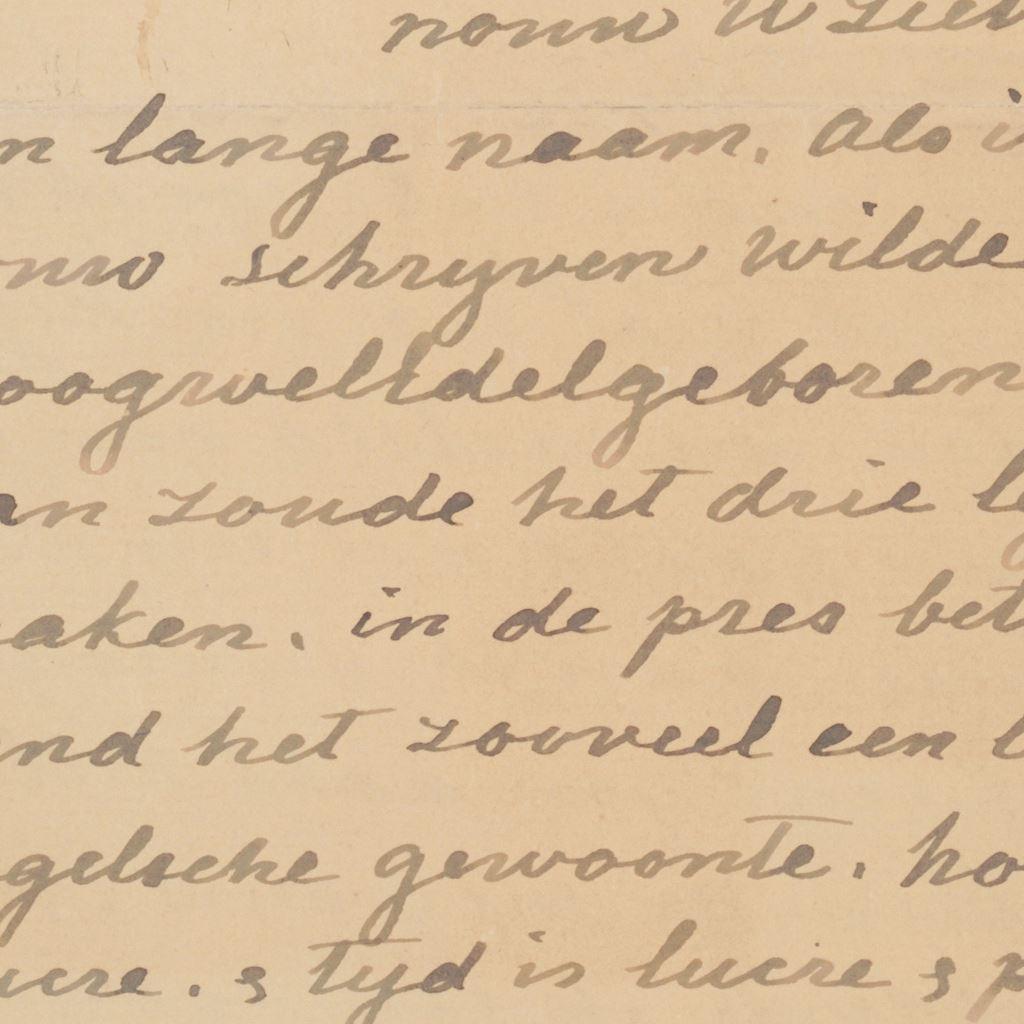 nonn U Lieb
n lange naam. Als i
nro schryven wilde
oogwelEdelgeboren
an zoude het drie le
aken. in de pres bet
nd het zooveel een l
gelsche gewoonte. ho
ucre. & tyd is lucre & p